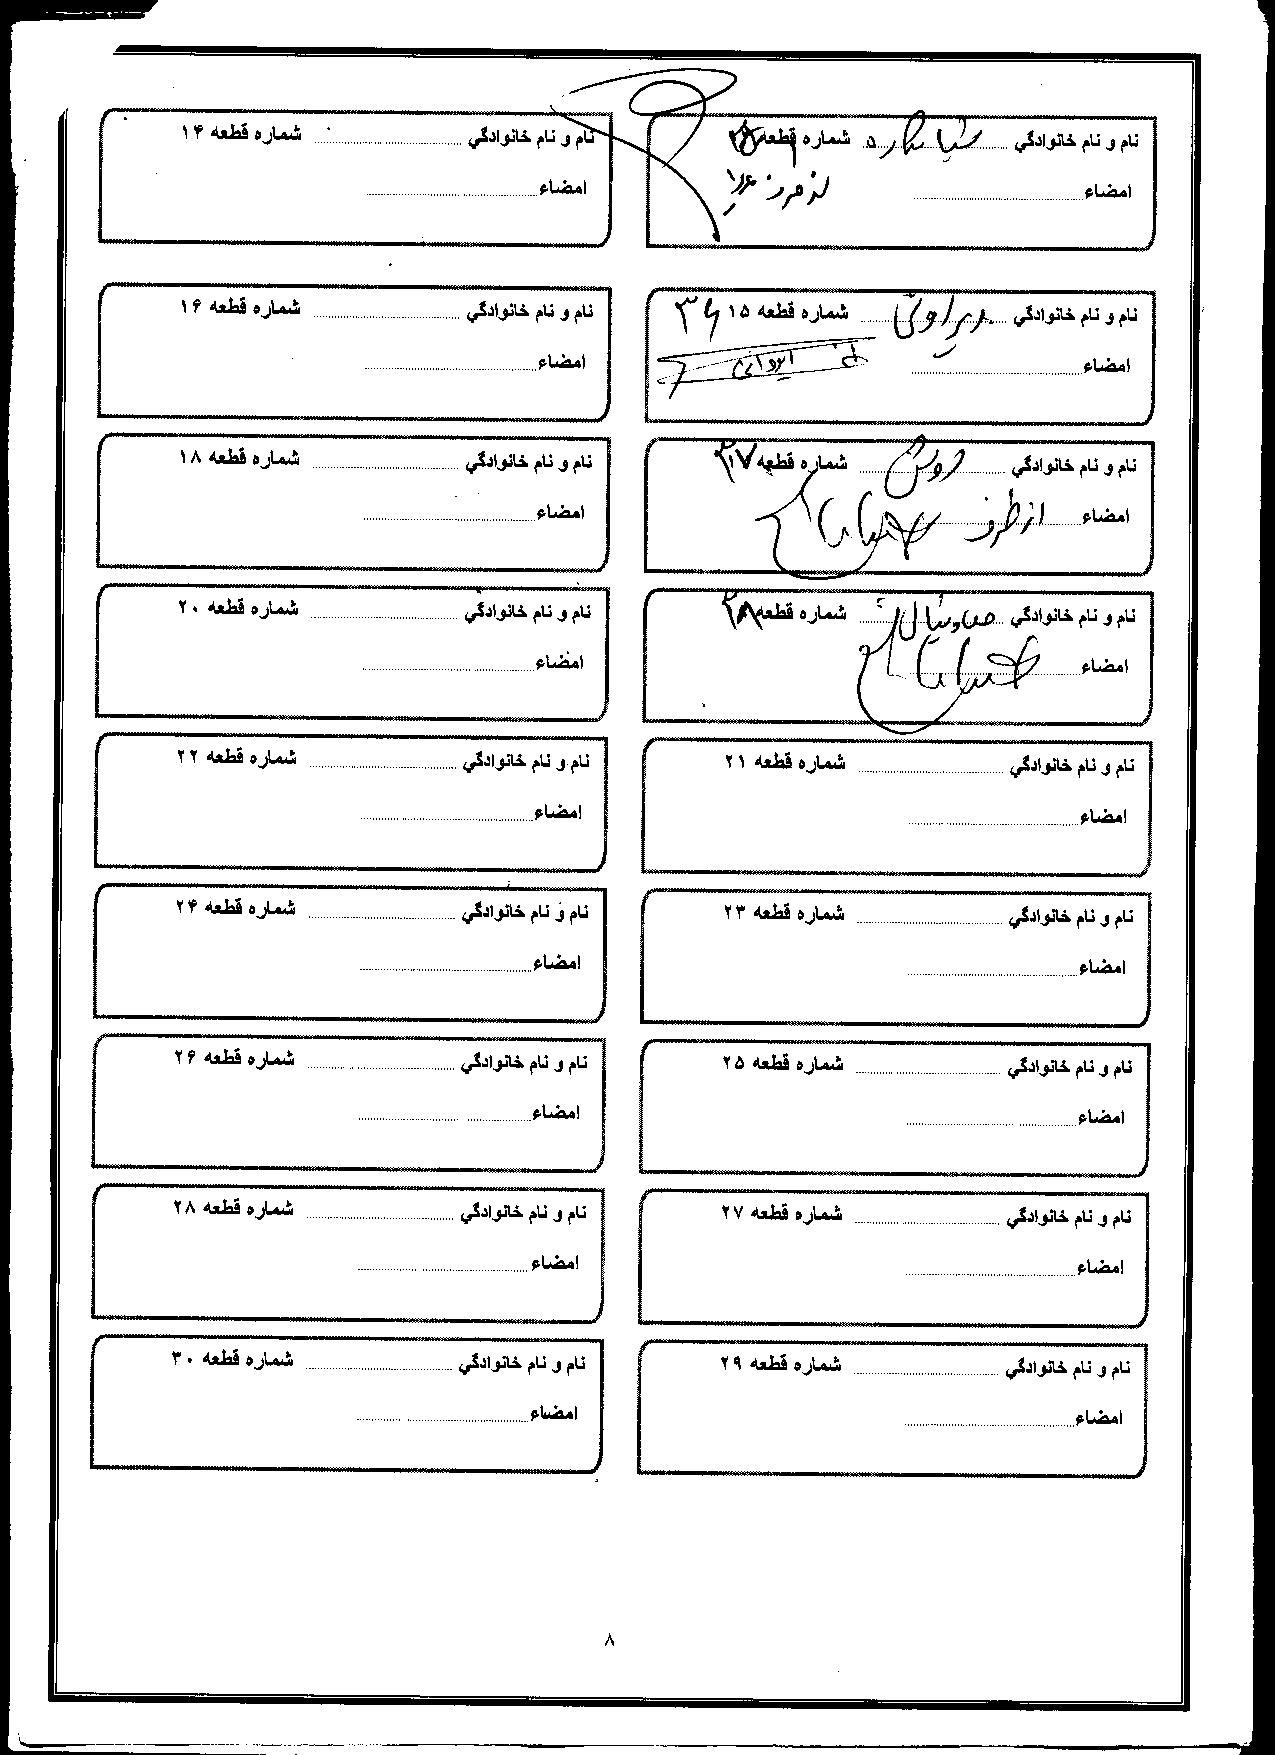 نام و نام خانوادگي شماره قطعه
امضاء
نام و نام خانوادگي شماره قطعه ۱۴
امضاء
نام و نام خانوادگي شماره قطعه ۱۵
امضاء
نام و نام خانوادگي شماره قطعه ۱۶
امضاء
نام و نام خانوادگي شماره قطعه ۱۷
امضاء از طرف
نام و نام خانوادگي شماره قطعه ۱۸
امضاء
نام و نام خانوادگي شماره قطعه
امضاء
نام و نام خانوادگي شماره قطعه ۲۰
امضاء
نام و نام خانوادگي شماره قطعه ۲۱
امضاء
نام و نام خانوادگي شماره قطعه ۲۲
امضاء
نام و نام خانوادگي شماره قطعه ۲۳
امضاء
نام و نام خانوادگي شماره قطعه ۲۴
امضاء
نام و نام خانوادگي شماره قطعه ۲۵
امضاء
نام و نام خانوادگي شماره قطعه ۲۶
امضاء
نام و نام خانوادگي شماره قطعه ۲۷
امضاء
نام و نام خانوادگي شماره قطعه ۲۸
امضاء
نام و نام خانوادگي شماره قطعه ۲۹
امضاء
نام و نام خانوادگي شماره قطعه ۳۰
امضاء
۸